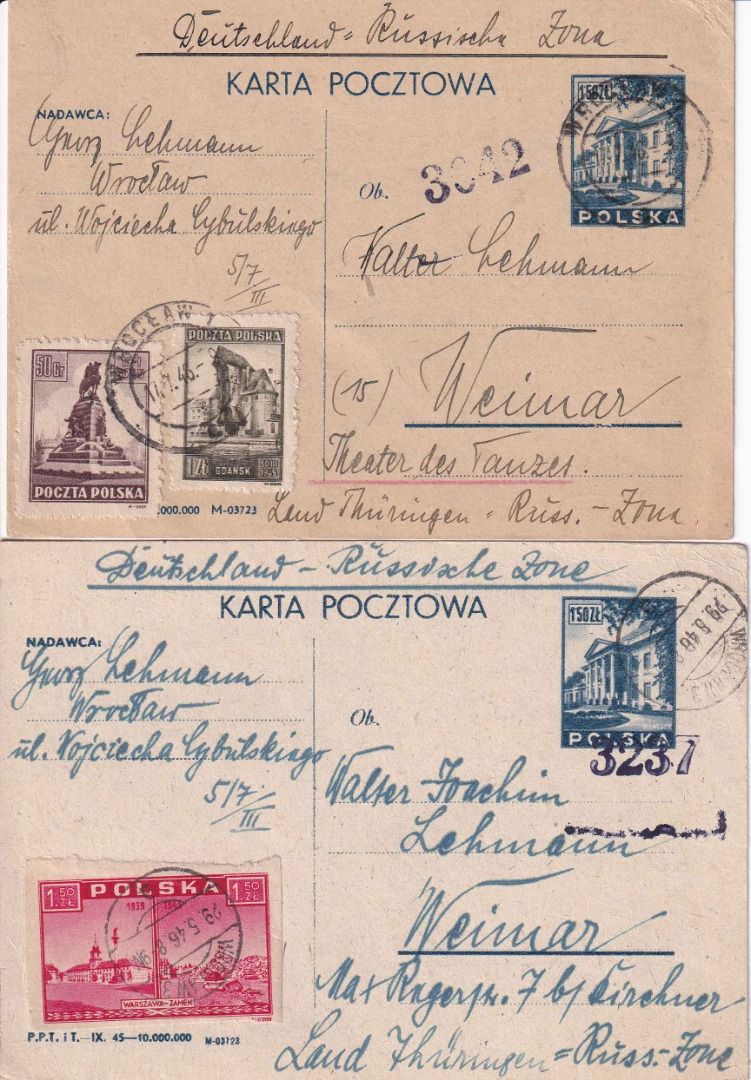 Deutschland = Russische Zona
KARTA POCZTOWA
NADAWCA:
Georg Lehmann
Wrocław
ul. Wojciecha Cybulskiego
5/7
III
150ZŁ
POLSKA
3042
Ob.
Walter Lehmann
(15) Weimar
Theater des Tanzes.
Land Thüringen = Russ. - Zona
WROCŁAW 1
50 Gr
POCZTA POLSKA
POCZTA POLSKA
1 Zł
GDAŃSK
30 III
1945
.000.000 M-03723
Deutschland - Russische Zone
KARTA POCZTOWA
NADAWCA:
Georg Lehmann
Wrocław
ul. Wojciecha Cybulskiego
5/7
III
150ZŁ
POLSKA
29.5.46.8
3237
Ob.
Walter Joachim
Lehmann
Weimar
Max Regerstr. 7 b/ Kirchner
Land Thüringen = Russ.-Zone
1.50 ZŁ
POLSKA
1.50 ZŁ
1939
29.5.46.8
WARSZAWA-ZAMEK
P.P.T. i T.—IX. 45—10.000.000 M-03723